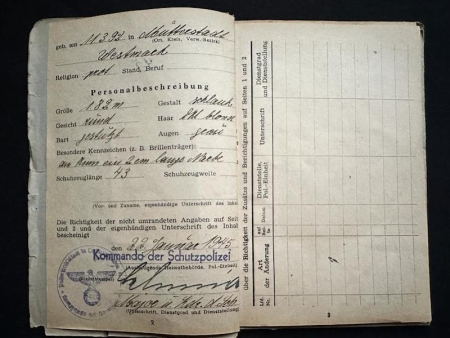 geb. am 11.3.93 in Mutterstadt
(Ort, Kreis, Verw.-Bezirk)
Westmark
Religion prot. Stand, Beruf
Personalbeschreibung
Größe 1,82 m Gestalt schlank
Gesicht rund Haar blond
Bart gestutzt Augen grau
Besondere Kennzeichen (z. B. Brillenträger):
2 cm lange Narbe
Schuhzeuglänge 43 Schuhzeugweite
(Vor- und Zuname, eigenhändige Unterschrift des Inhabers)
Die Richtigkeit der nicht umrandeten Angaben auf Seite
und 2 und der eigenhändigen Unterschrift des Inhabers
bescheinigt
den 22. Januar 1945
Kommando der Schutzpolizei
(Ausfertigende Heimatbehörde, Pol.-Einheit)
(Unterschrift, Dienstgrad und Dienststellung)
2
über die Richtigkeit der Zusätze und Berichtigungen auf Seiten 1 und 2
Dienstgrad
und Dienststellung
Unterschrift
Dienststelle,
Pol.-Einheit
Datum
Art
der Änderung
Lfd.
Nr.
3